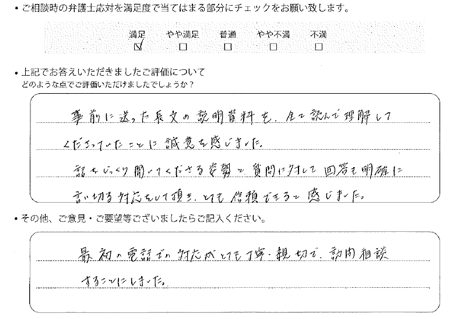 • ご相談時の弁護士応対を満足度で当てはまる部分にチェックをお願い致します。
満足 やや満足 普通 やや不満 不満
☑ □ □ □ □
• 上記でお答えいただきましたご評価について
どのような点でご評価いただけましたでしょうか？
事前に送った長文の説明資料を、全て読んで理解して
くださっていたことに誠意を感じました。
話をじっくり聞いてくださる姿勢と質問に対して回答を明確に
言い切る対応をして頂き、とても信頼できると感じました。
• その他、ご意見・ご要望等ございましたらご記入ください。
最初の電話での対応がとても丁寧・親切で、訪問相談
することにしました。